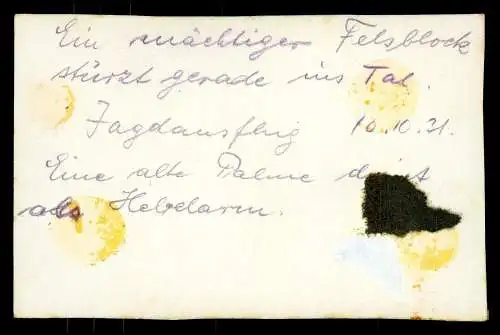 Ein mächtiger Felsblock
stürzt gerade ins Tal.
Jagdausflug 10.10.31.
Eine alte Palme dient
als Hebelarm.